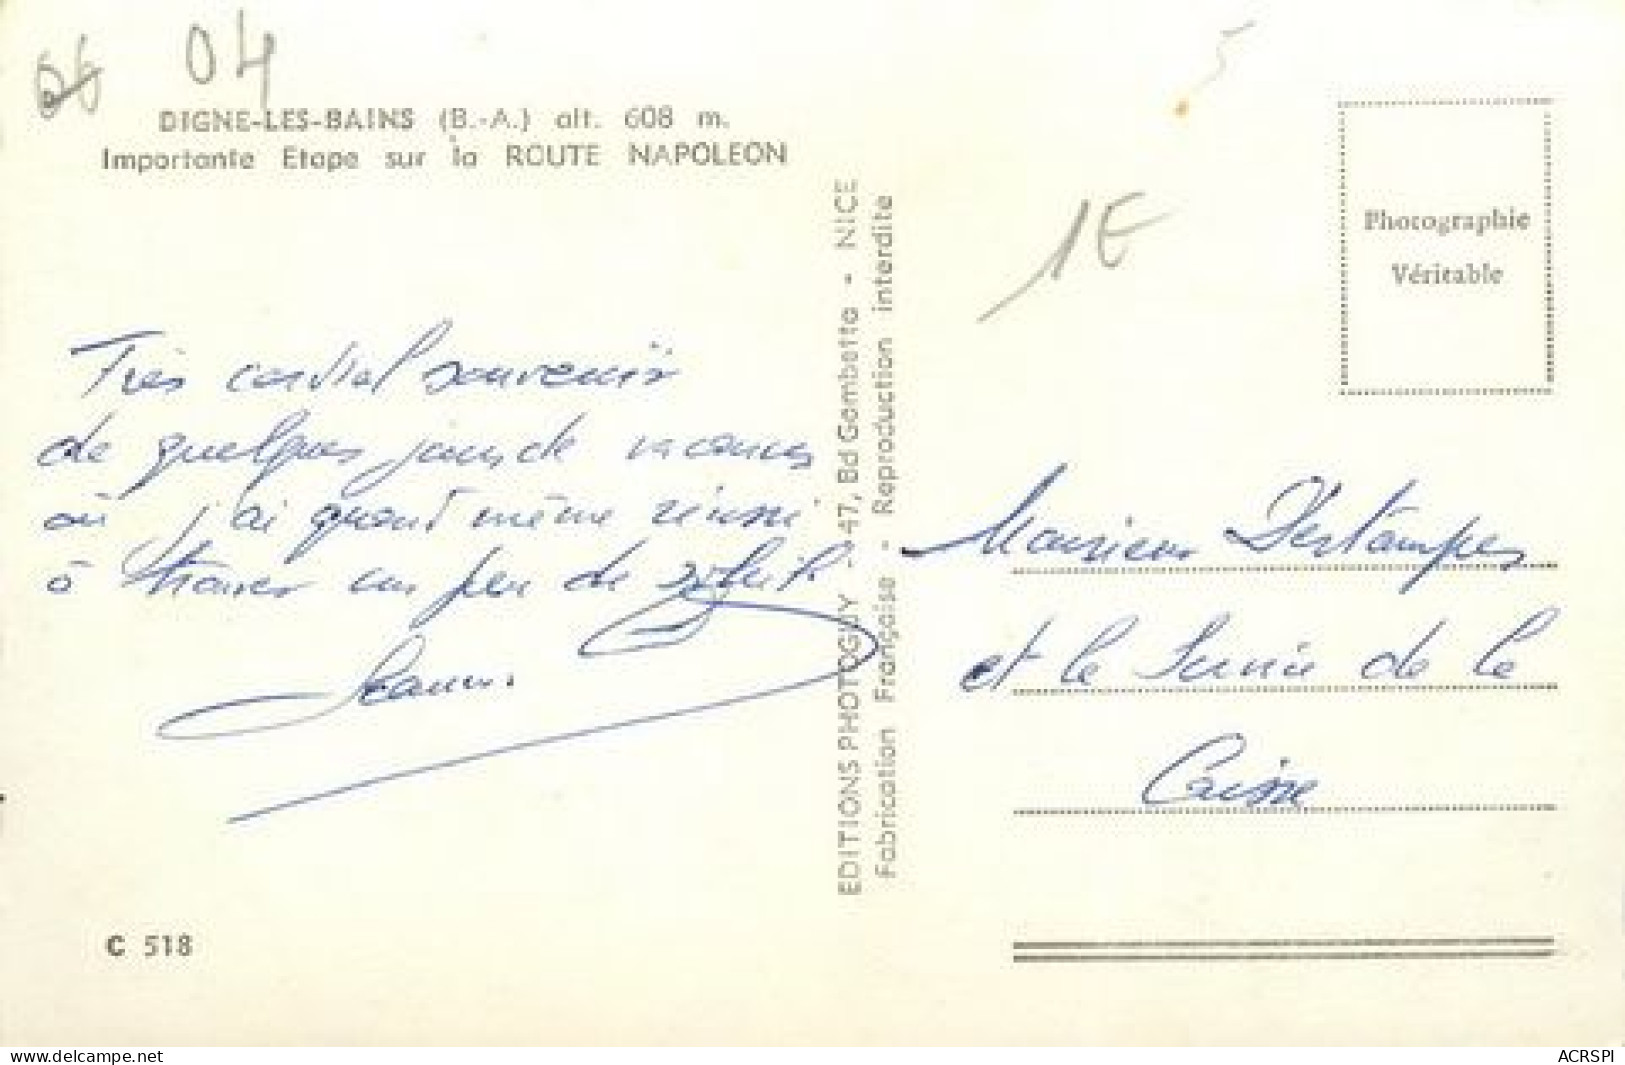 06 04
5
DIGNE-LES-BAINS (B.-A.) alt. 608 m.
Importante Etape sur la ROUTE NAPOLEON
1E
Photographie
Véritable
Très cordial souvenir
de quelques jours de vacances
où j'ai quand même réussi
à trouver un peu de soleil.
EDITIONS PHOTOGUY - 47, Bd Gambetta - NICE
Fabrication Française - Reproduction interdite
Monsieur Destampes
et le Service de la
Caisse
C 518
www.delcampe.net
ACRSPI